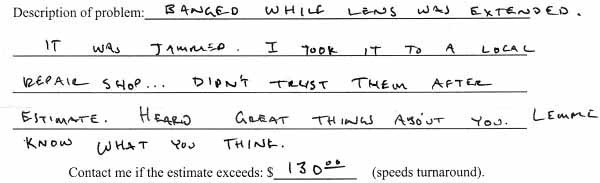 Description of problem: BANGED WHILE LENS WAS EXTENDED.
IT WAS JAMMED. I TOOK IT TO A LOCAL
REPAIR SHOP... DIDN'T TRUST THEM AFTER
ESTIMATE. HEARD GREAT THINGS ABOUT YOU. LEMME
KNOW WHAT YOU THINK.
Contact me if the estimate exceeds: $ 130.00 (speeds turnaround).